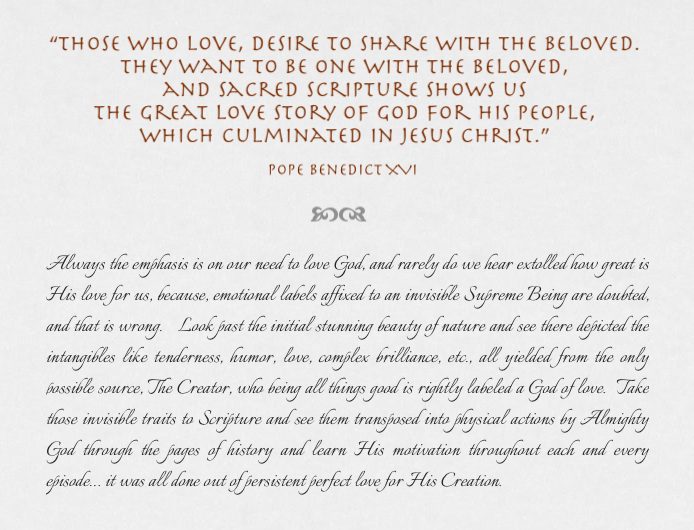 “THOSE WHO LOVE, DESIRE TO SHARE WITH THE BELOVED.
THEY WANT TO BE ONE WITH THE BELOVED,
AND SACRED SCRIPTURE SHOWS US
THE GREAT LOVE STORY OF GOD FOR HIS PEOPLE,
WHICH CULMINATED IN JESUS CHRIST.”
POPE BENEDICT XVI
Always the emphasis is on our need to love God, and rarely do we hear extolled how great is
His love for us, because, emotional labels affixed to an invisible Supreme Being are doubted,
and that is wrong. Look past the initial stunning beauty of nature and see there depicted the
intangibles like tenderness, humor, love, complex brilliance, etc., all yielded from the only
possible source, The Creator, who being all things good is rightly labeled a God of love. Take
those invisible traits to Scripture and see them transposed into physical actions by Almighty
God through the pages of history and learn His motivation throughout each and every
episode... it was all done out of persistent perfect love for His Creation.